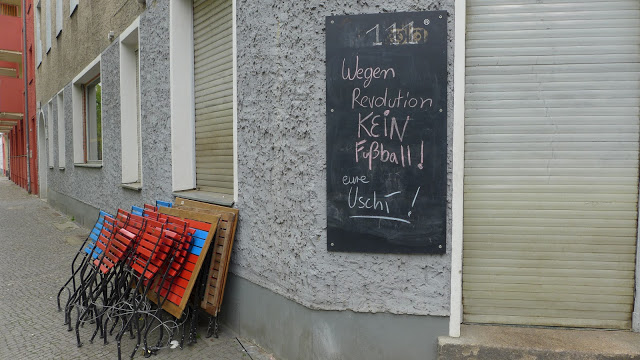 Wegen
Revolution
KEIN
Fußball!
eure
Uschi!